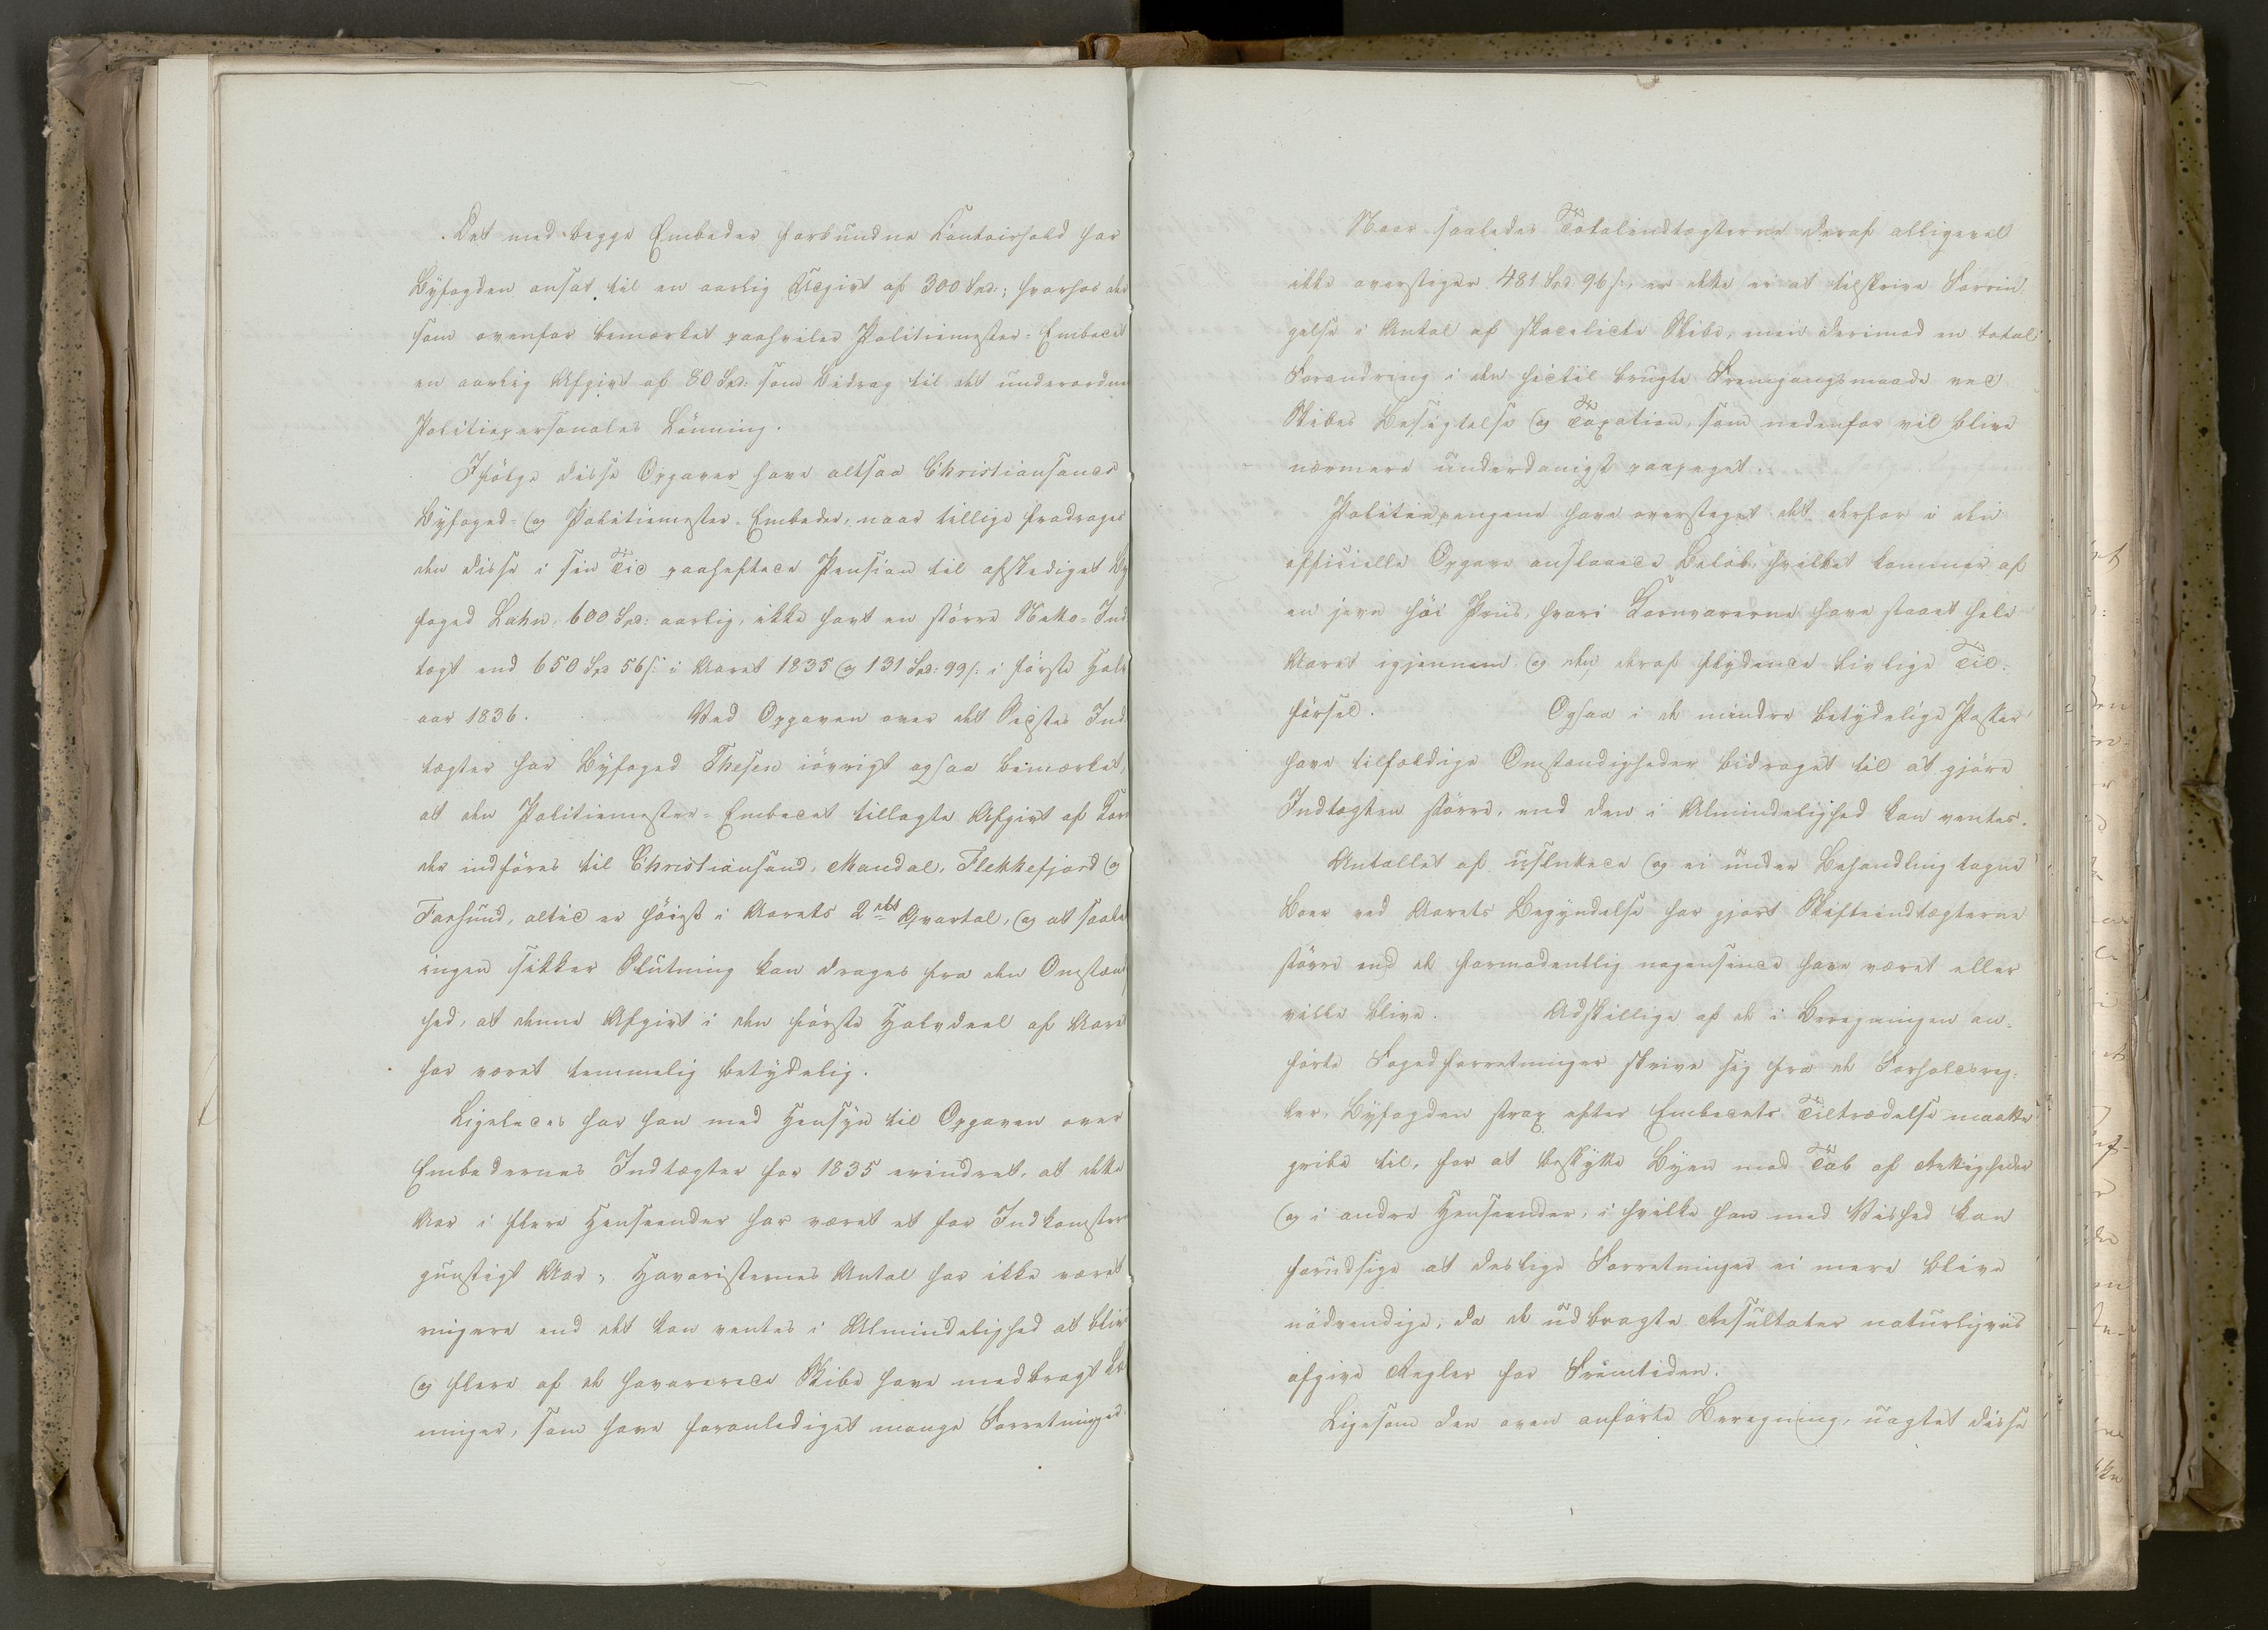 Det med begge Embeder forbundne Contoirhold har
Byfogden ansat til en aarlig Udgivt af 300 Spd:; hvorhos der
som ovenfor bemærket paahviler Politiemester-Embedet
en aarlig Afgivt af 80 Spd: som Bidrag til det underordne
Politiepersonales Lönning.
Ifölge disse Opgaver have altsaa Christiansands
Byfoged- og Politiemester-Embeder, naar tillige fradrages
den disse i sin Tid paaheftede Pension til afskediget By
foged Lahn, 600 Spd: aarlig, ikke havt en större Netto-Ind
tægt end 650 Spd 56 s: i Aaret 1835 og 131 Spd: 99 s: i förste Halv
aar 1836. Ved Opgaven over det Sidstes Ind
tægter har Byfoged Thesen iövrigt ogsaa bemærket,
at den Politiemester-Embedet tillagte Afgivt af Korn
der indföres til Christiansand, Mandal, Flekkefjord og
Farsund, altid er höiest i Aarets 2det Qvartal, og at saale
ingen sikker Slutning kan drages fra den Omstæn
hed, at denne Afgivt i den förste Halvdeel af Aaret
har været temmelig betydelig.
Ligeledes har han med Hensyn til Opgaven over
Embedernes Indtægter for 1835 erindret, at dette
Aar i flere Henseender har været et for Indkomsterne
gunstigt Aar; Havaristernes Antal har ikke været
ringere end det kan ventes i Almindelighed at bliv
og flere af de havarerede Skibe have medbragt La
ninger, som have foranlediget mange Forretninger.
Naar saaledes Totalindtægterne deraf alligevel
ikke overstiger 481 Spd 96 s:, er dette ei at tilskrive Forrin
gelse i Antal af skadelidte Skibe, men derimod en total
Forandring i den hidtil brugte Fremgangsmaade ved
Skibes Besigtelse og Taxation, som nedenfor vil blive
nærmere underdanigst paapeget.
Politiepengene have oversteget det derfor i den
officielle Opgave anslaaede Belöb, hvilket kommer af
en jevn höi Priis, hvori Kornvarerne have staaet hele
Aaret igjennem og den deraf flydende livlige Til-
försel. Ogsaa i de mindre betydelige Poster
have tilfældige Omstændigheder bidraget til at gjöre
Indtægten större, end den i Almindelighed kan ventes.
Antallet af usluttede og ei under Behandling tagne
Boer ved Aarets Begyndelse har gjort Skifteindtægterne
större end de formodentlig nogensinde have været eller
ville blive. Adskillige af de i Beregningen an-
förte Fogedforretninger skrive sig fra de Forholdsreg-
ler, Byfogden strax efter Embedets Tiltrædelse maatte
gribe til, for at beskytte Byen mod Tab af Rettigheder
og i andre Henseender, i hvilke han med Vished kan
forudsige at deslige Forretninger ei mere blive
nödvendige, da de udbragte Resultater naturligviis
afgive Regler for Fremtiden.
Ligesom den oven anförte Beregning, uagtet disse